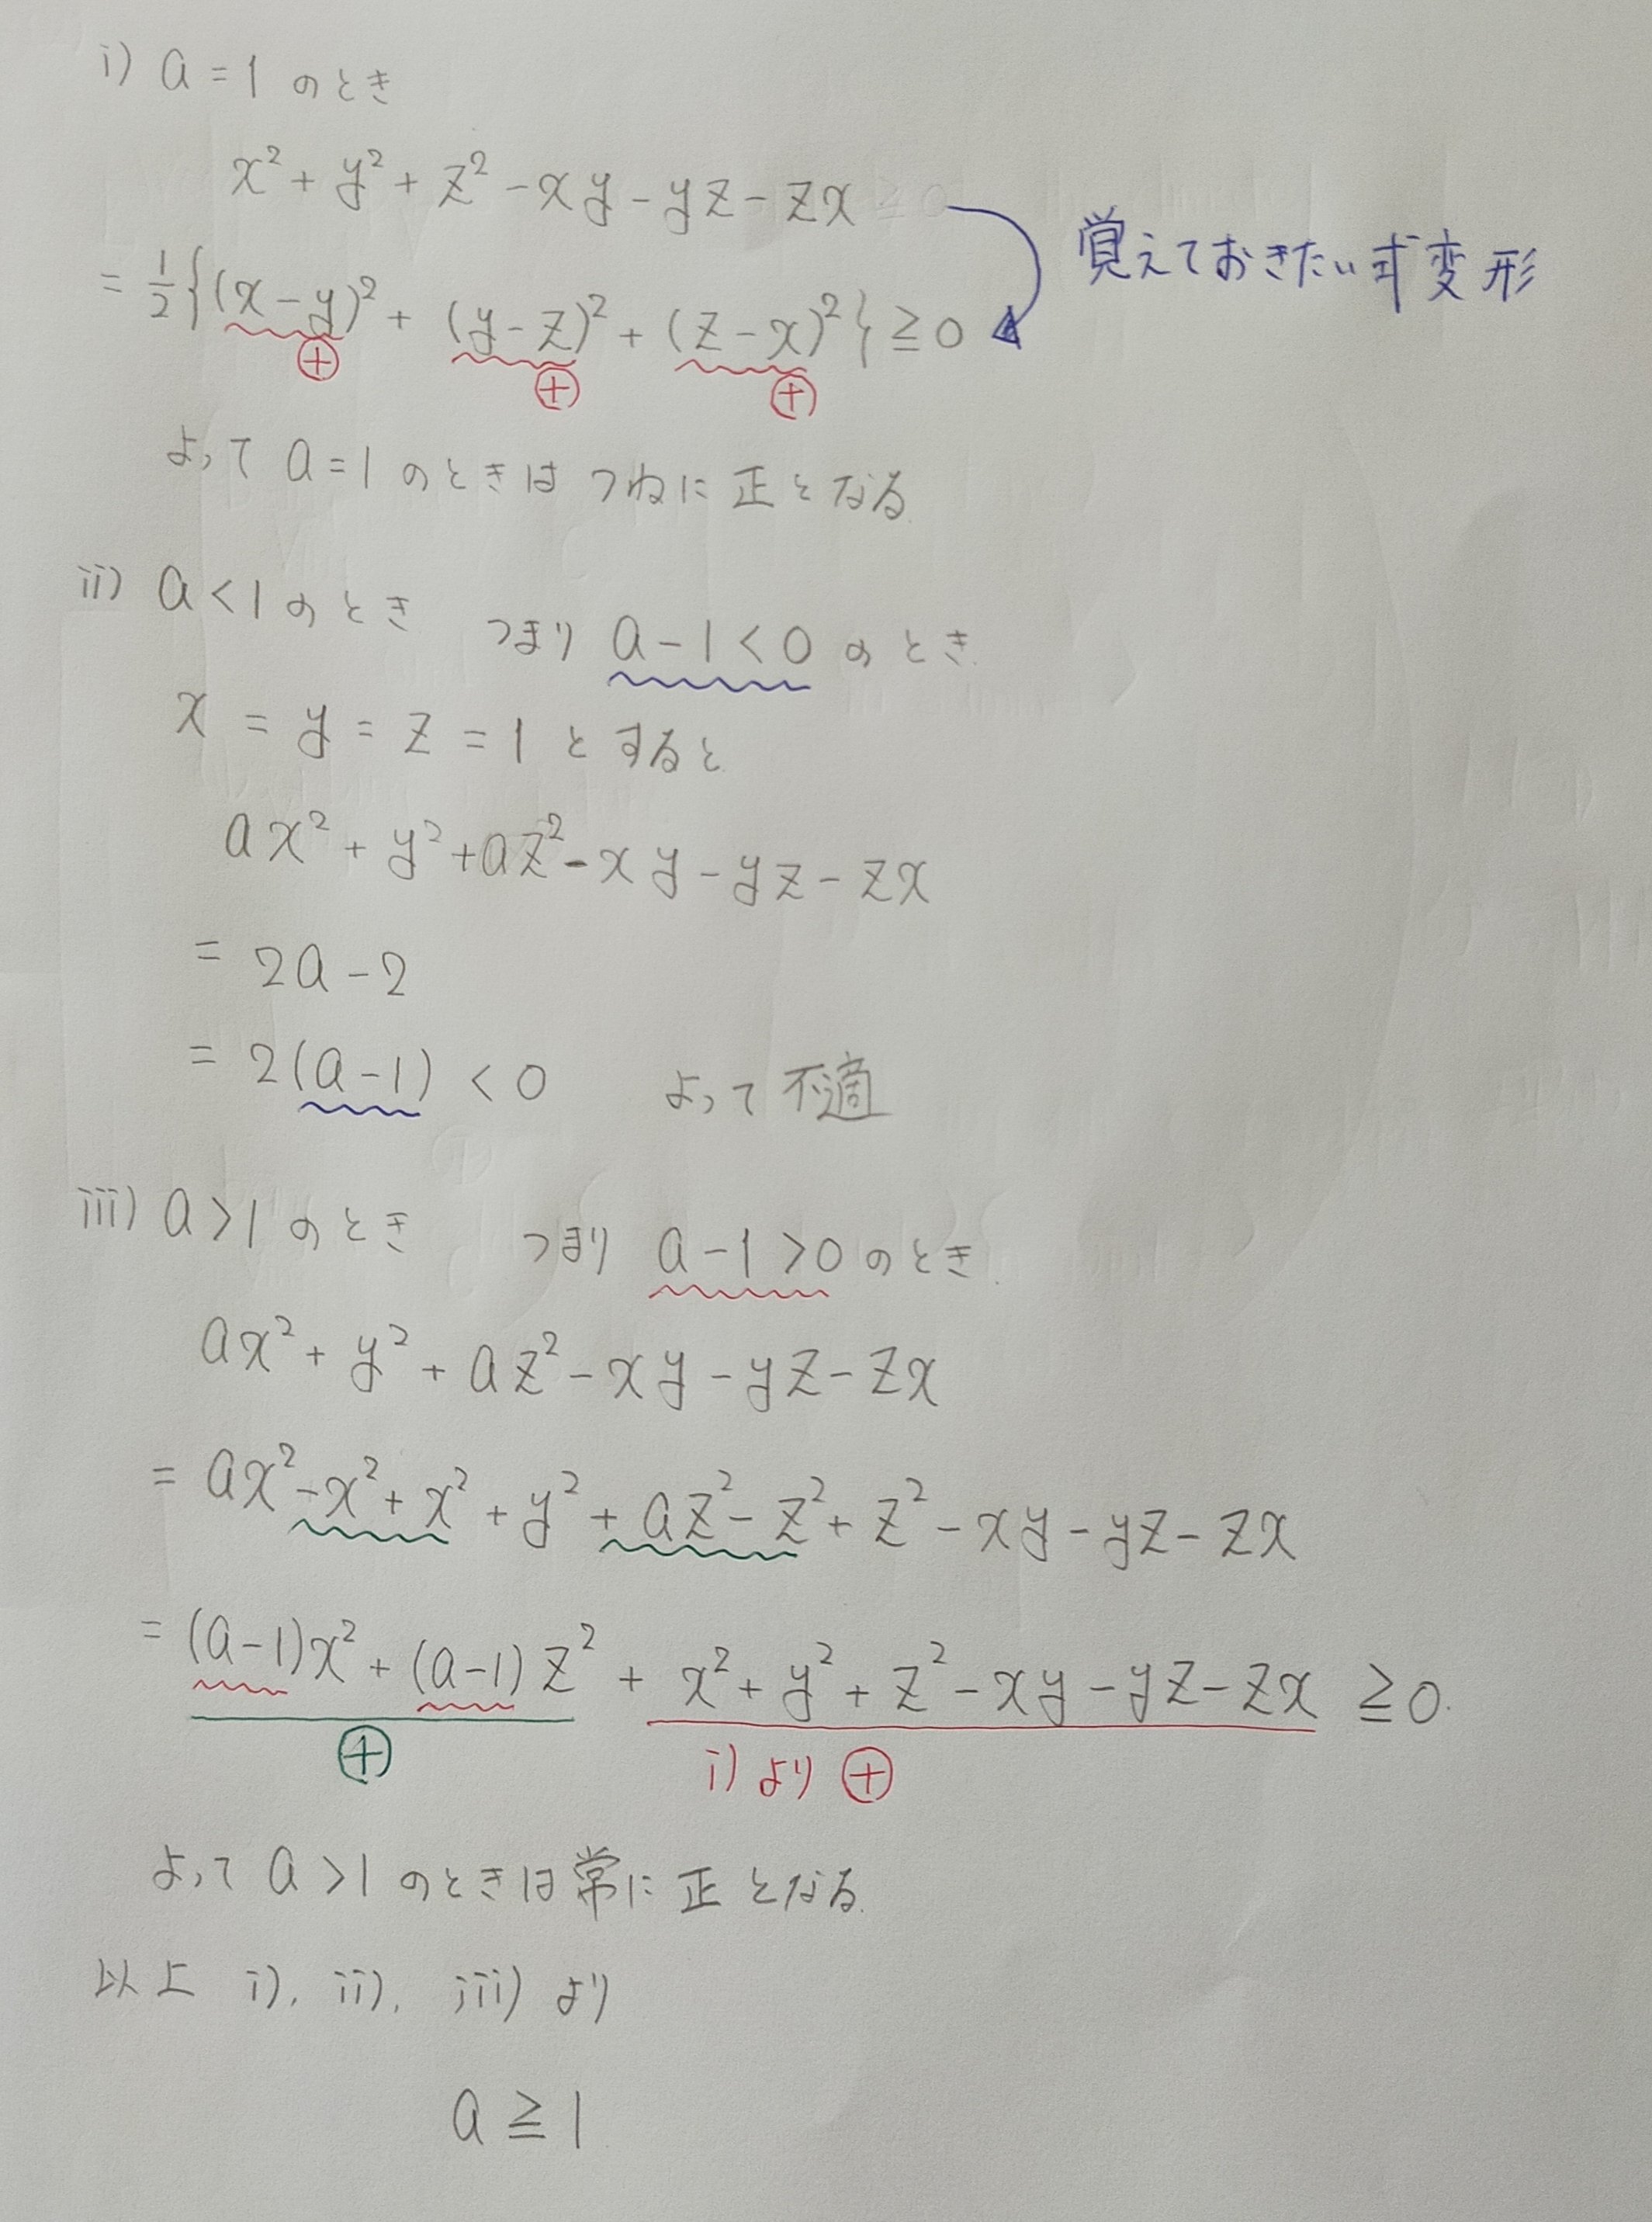 i) a=1 のとき
x²+y²+z²-xy-yz-zx
=1/2{(x-y)²+(y-z)²+(z-x)²}≧0
覚えておきたい式変形
⊕ ⊕ ⊕
よって a=1 のときは つねに 正となる
ii) a<1 のとき つまり a-1<0 のとき
x=y=z=1 とすると
ax²+y²+az²-xy-yz-zx
=2a-2
=2(a-1)<0 よって 不適
iii) a>1 のとき つまり a-1>0 のとき
ax²+y²+az²-xy-yz-zx
=ax²-x²+x²+y²+az²-z²+z²-xy-yz-zx
=(a-1)x²+(a-1)z²+x²+y²+z²-xy-yz-zx≧0.
⊕ i) より ⊕
よって a>1 のときは常に 正となる.
以上 i), ii), iii) より
a≧1